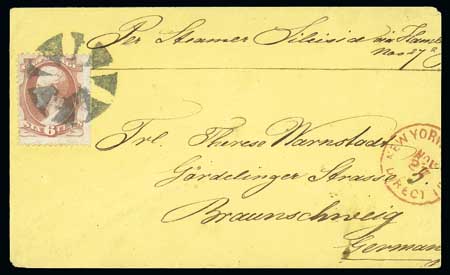 Per Steamer Silesia via Hamb
Nov 27
SIX CENTS
Frl. Therese Warnstadt
Gördelinger Strasse
Braunschweig
German
NEW YORK
NOV
27
DIRECT